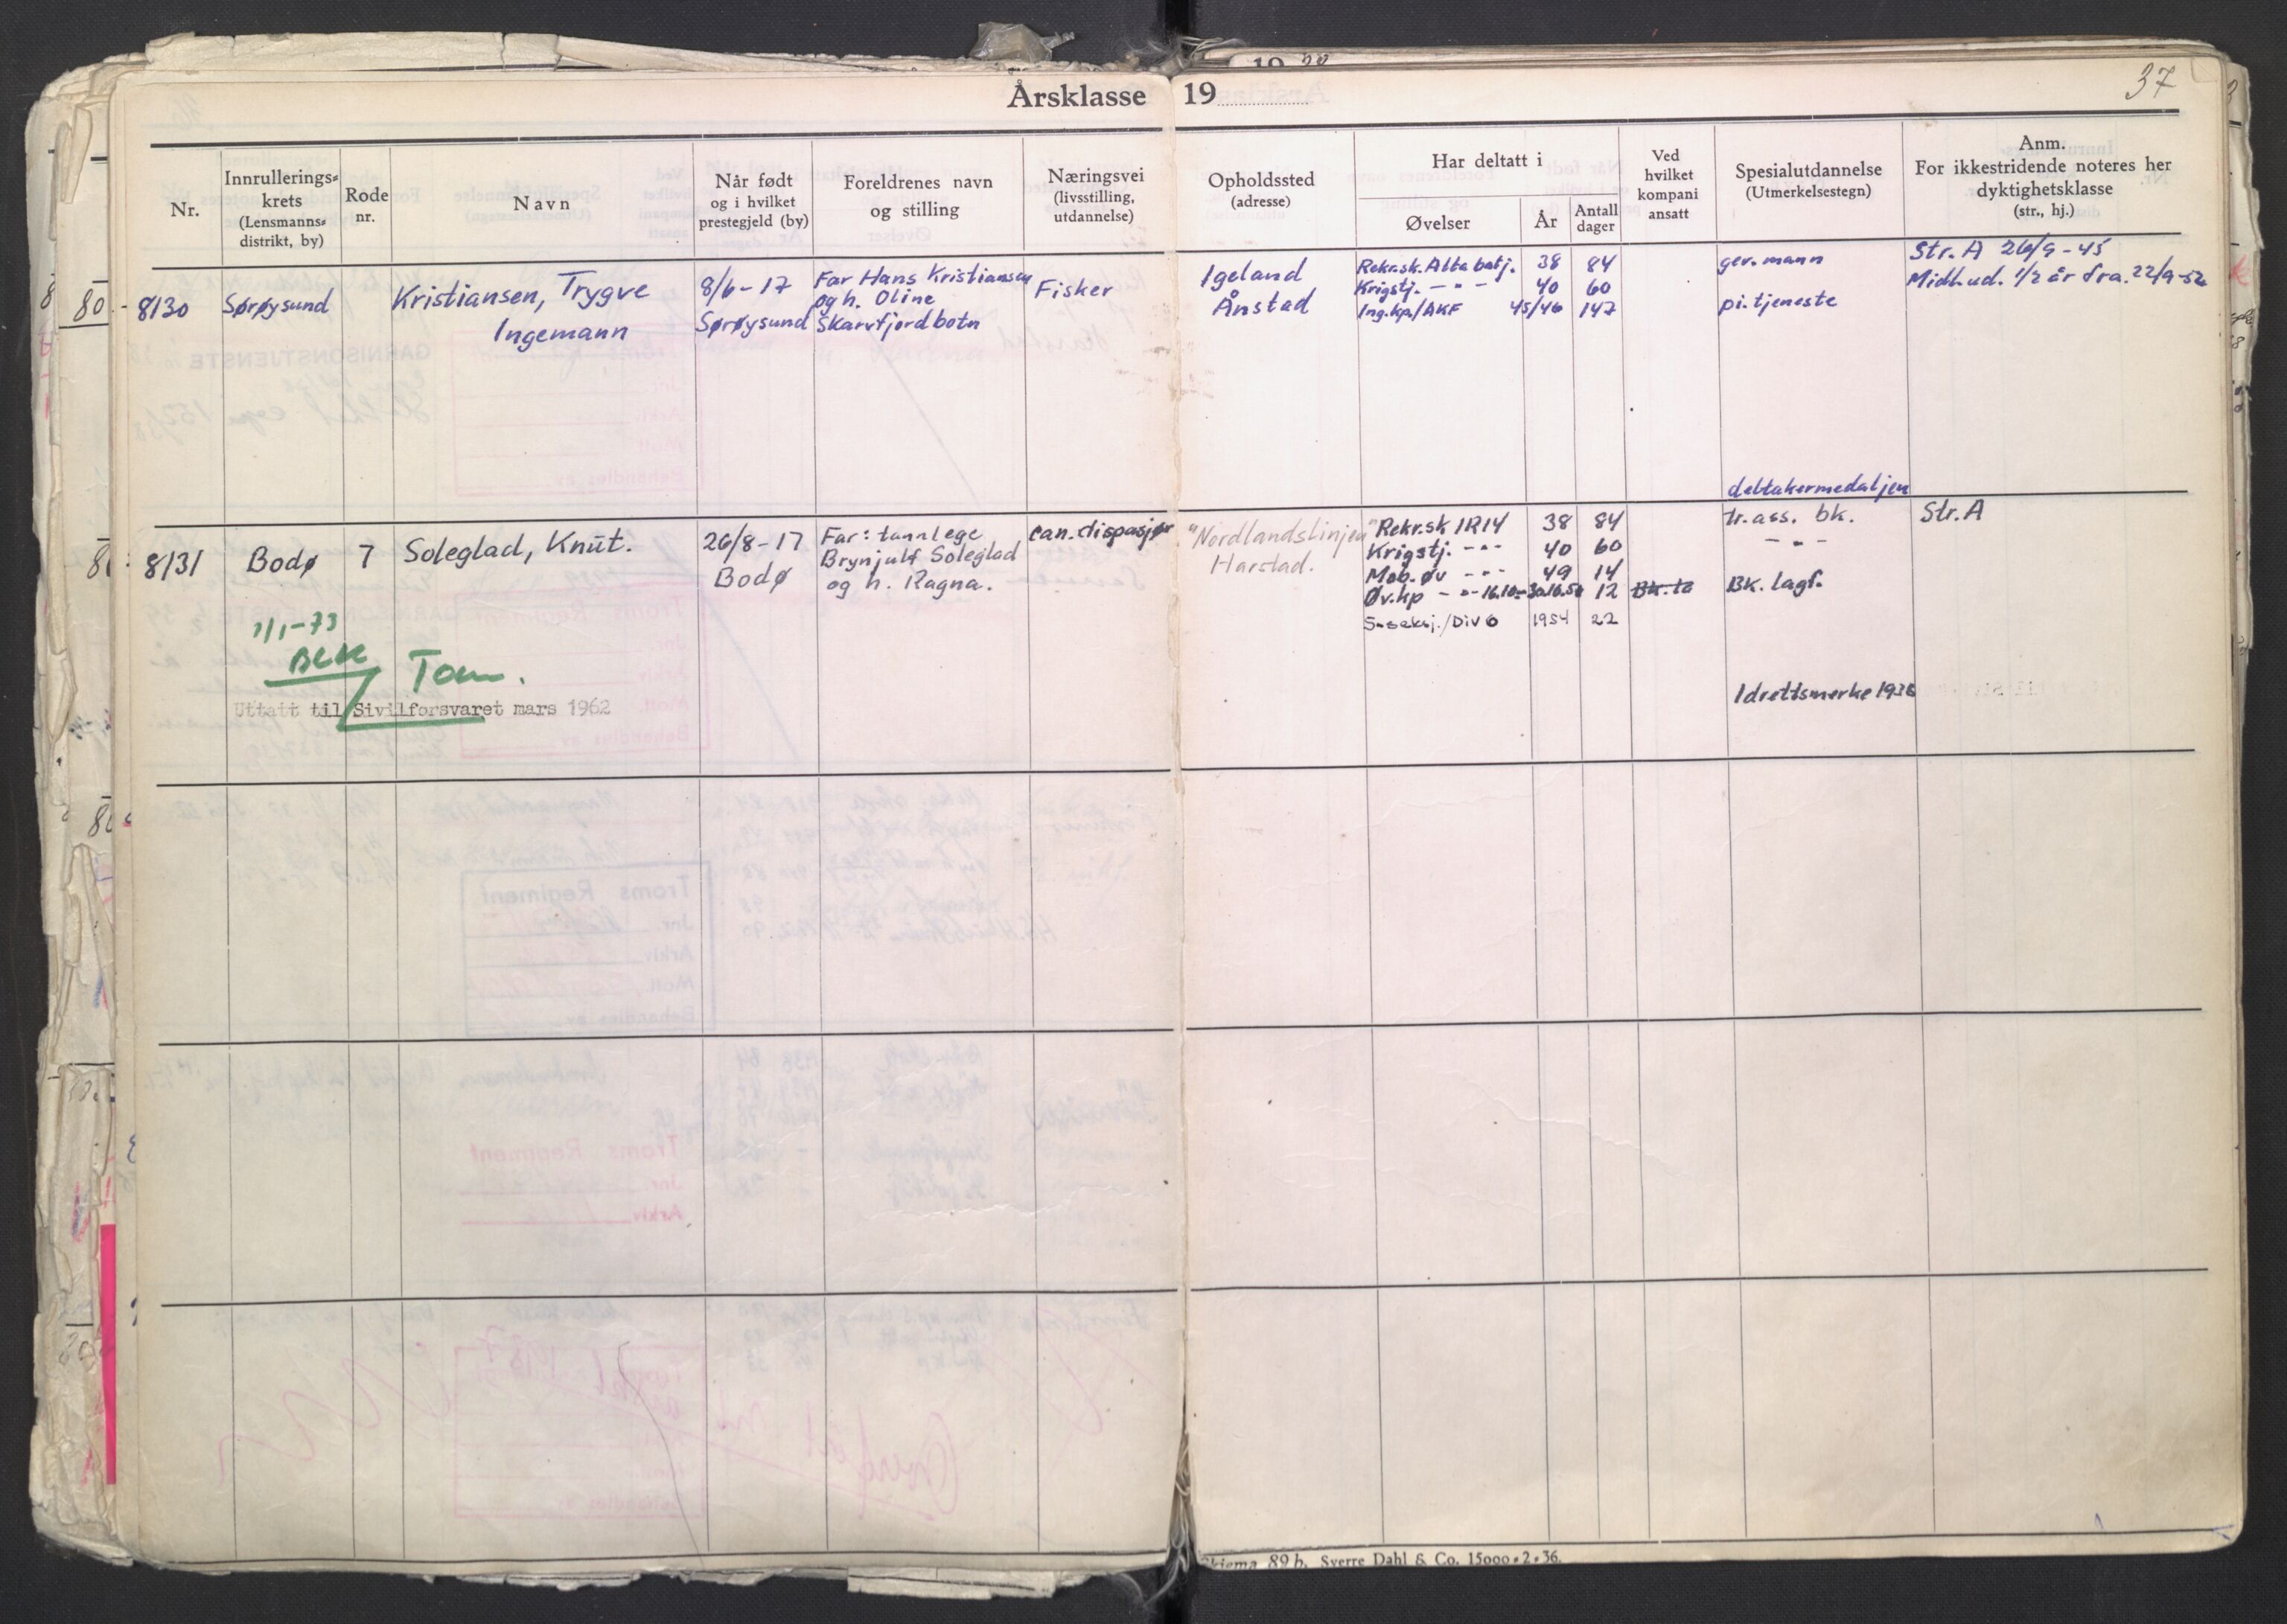 37
Årsklasse 19
Nr.
Innrullerings=
krets
(Lensmanns=
distrikt, by)
Rode
nr.
Navn
Når født
og i hvilket
prestegjeld (by)
Foreldrenes navn
og stilling
Næringsvei
(livsstilling,
utdannelse)
Opholdssted
(adresse)
Har deltatt i
Øvelser
År
Antall
dager
Ved
hvilket
kompani
ansatt
Spesialutdannelse
(Utmerkelsestegn)
Anm.
For ikkestridende noteres her
dyktighetsklasse
(str., hj.)
8130
Sørøysund
Kristiansen, Trygve
Ingemann
8/6-17
Sørøysund
Far Hans Kristiansen
og h. Oline
Skarvfjordbotn
Fisker
Igeland
Ånstad
Rekr.sk. Alta batj. 38 84
Krigstj. - " - 40 60
Ing.kp./AKF 45/46 147
gev.mann
pi.tjeneste
deltakermedaljen
Str. A 26/9-45
Midl.ud. 1/2 år fra. 22/9-52
8131
Bodø
7
Soleglad, Knut.
26/8-17
Bodø
Far: tannlege
Brynjulf Soleglad
og h. Ragna.
can.dispasjør
"Nordlandslinjen"
Harstad.
Rekr.sk IR14 38 84
Krigstj. - " - 40 60
Mob.øv - " - 49 14
Øv.kp - " - 16.10-30.10.50 12
S-seksj./Div 6 1954 22
Bk. to
tr.ass. bk.
- " -
Bk. lagf.
Idrettsmerke 1938
Str. A
1/1-73
Uttatt til Sivilforsvaret mars 1962
Skjema 89 b. Sverre Dahl & Co. 15000*2*36.